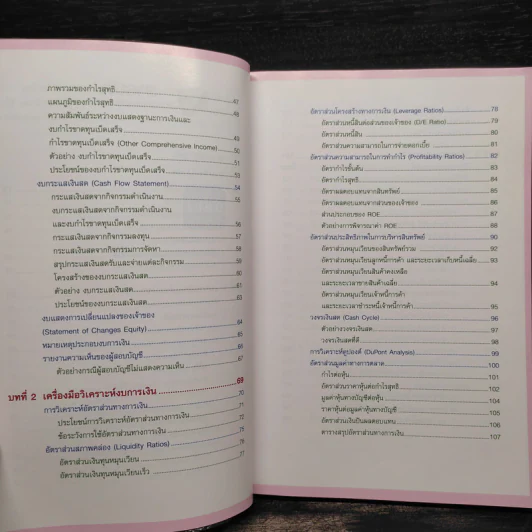 ภาพรวมของกำไรสุทธิ 47
แผนภูมิของกำไรสุทธิ 48
ความสัมพันธ์ระหว่างงบแสดงฐานะการเงินและ
งบกำไรขาดทุนเบ็ดเสร็จ 49
กำไรขาดทุนเบ็ดเสร็จ (Other Comprehensive Income) 50
ตัวอย่าง งบกำไรขาดทุนเบ็ดเสร็จ 51
ประโยชน์ของงบกำไรขาดทุนเบ็ดเสร็จ 53
งบกระแสเงินสด (Cash Flow Statement) 54
กระแสเงินสดจากกิจกรรมดำเนินงาน 55
งบกระแสเงินสดจากกิจกรรมดำเนินงาน
และงบกำไรขาดทุนเบ็ดเสร็จ 56
กระแสเงินสดจากกิจกรรมลงทุน 57
กระแสเงินสดจากกิจกรรมการจัดหา 58
สรุปกระแสเงินสดรับและจ่ายแต่ละกิจกรรม 59
โครงสร้างของงบกระแสเงินสด 60
ตัวอย่าง งบกระแสเงินสด 61
ประโยชน์ของงบกระแสเงินสด 63
งบแสดงการเปลี่ยนแปลงของเจ้าของ
(Statement of Changes Equity) 64
หมายเหตุประกอบงบการเงิน 65
รายงานความเห็นของผู้สอบบัญชี 66
ตัวอย่างกรณีผู้สอบบัญชีไม่แสดงความเห็น 67
บทที่ 2 เครื่องมือวิเคราะห์งบการเงิน 69
การวิเคราะห์อัตราส่วนทางการเงิน 70
ประโยชน์การวิเคราะห์อัตราส่วนทางการเงิน 71
ข้อระวังการใช้อัตราส่วนทางการเงิน 72
อัตราส่วนสภาพคล่อง (Liquidity Ratios) 75
อัตราส่วนเงินทุนหมุนเวียน 76
อัตราส่วนเงินทุนหมุนเวียนเร็ว 77
อัตราส่วนโครงสร้างทางการเงิน (Leverage Ratios) 78
อัตราส่วนหนี้สินต่อส่วนของเจ้าของ (D/E Ratio) 79
อัตราส่วนหนี้สิน 80
อัตราส่วนความสามารถในการจ่ายดอกเบี้ย 81
อัตราส่วนความสามารถในการทำกำไร (Profitability Ratios) 82
อัตรากำไรขั้นต้น 83
อัตรากำไรสุทธิ 84
อัตราผลตอบแทนจากสินทรัพย์ 85
อัตราผลตอบแทนจากส่วนของเจ้าของ 86
ส่วนประกอบของ ROE 87
ตัวอย่างการพิจารณาค่า ROE 88
อัตราส่วนประสิทธิภาพในการบริหารสินทรัพย์
อัตราส่วนหมุนเวียนของสินทรัพย์รวม 92
อัตราส่วนหมุนเวียนลูกหนี้การค้า และระยะเวลาเก็บหนี้เฉลี่ย 93
อัตราส่วนหมุนเวียนสินค้าคงเหลือ
และระยะเวลาขายสินค้าเฉลี่ย 94
อัตราส่วนหมุนเวียนเจ้าหนี้การค้า
และระยะเวลาชำระหนี้เจ้าหนี้การค้า 95
วงจรเงินสด (Cash Cycle) 96
ตัวอย่างวงจรเงินสด 97
วงจรเงินสดที่ดี 98
การวิเคราะห์ดูปองต์ (DuPont Analysis) 99
อัตราส่วนมูลค่าทางการตลาด 100
กำไรต่อหุ้น 101
อัตราส่วนราคาหุ้นต่อกำไรสุทธิ 102
มูลค่าหุ้นทางบัญชีต่อหุ้น 103
ราคาหุ้นต่อมูลค่าหุ้นทางบัญชี 104
อัตราส่วนเงินปันผลตอบแทน 105
ตารางสรุปอัตราส่วนทางการเงิน 107